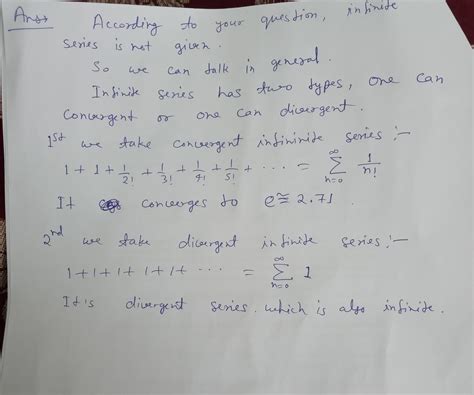 Ans→ According to your question, infinite
series is not given.
So we can talk in general.
Infinite series has two types, one can
convergent or one can divergent.
1st we take convergent infininite series :-
1 + 1 + 1/2! + 1/3! + 1/4! + 1/5! + ... = ∑_{n=0}^{∞} 1/n!
It converges to e ≅ 2.71.
2nd we take divergent infinite series :-
1+1+1+1+1+ ... = ∑_{n=0}^{∞} 1
It's divergent series. which is also infinite.